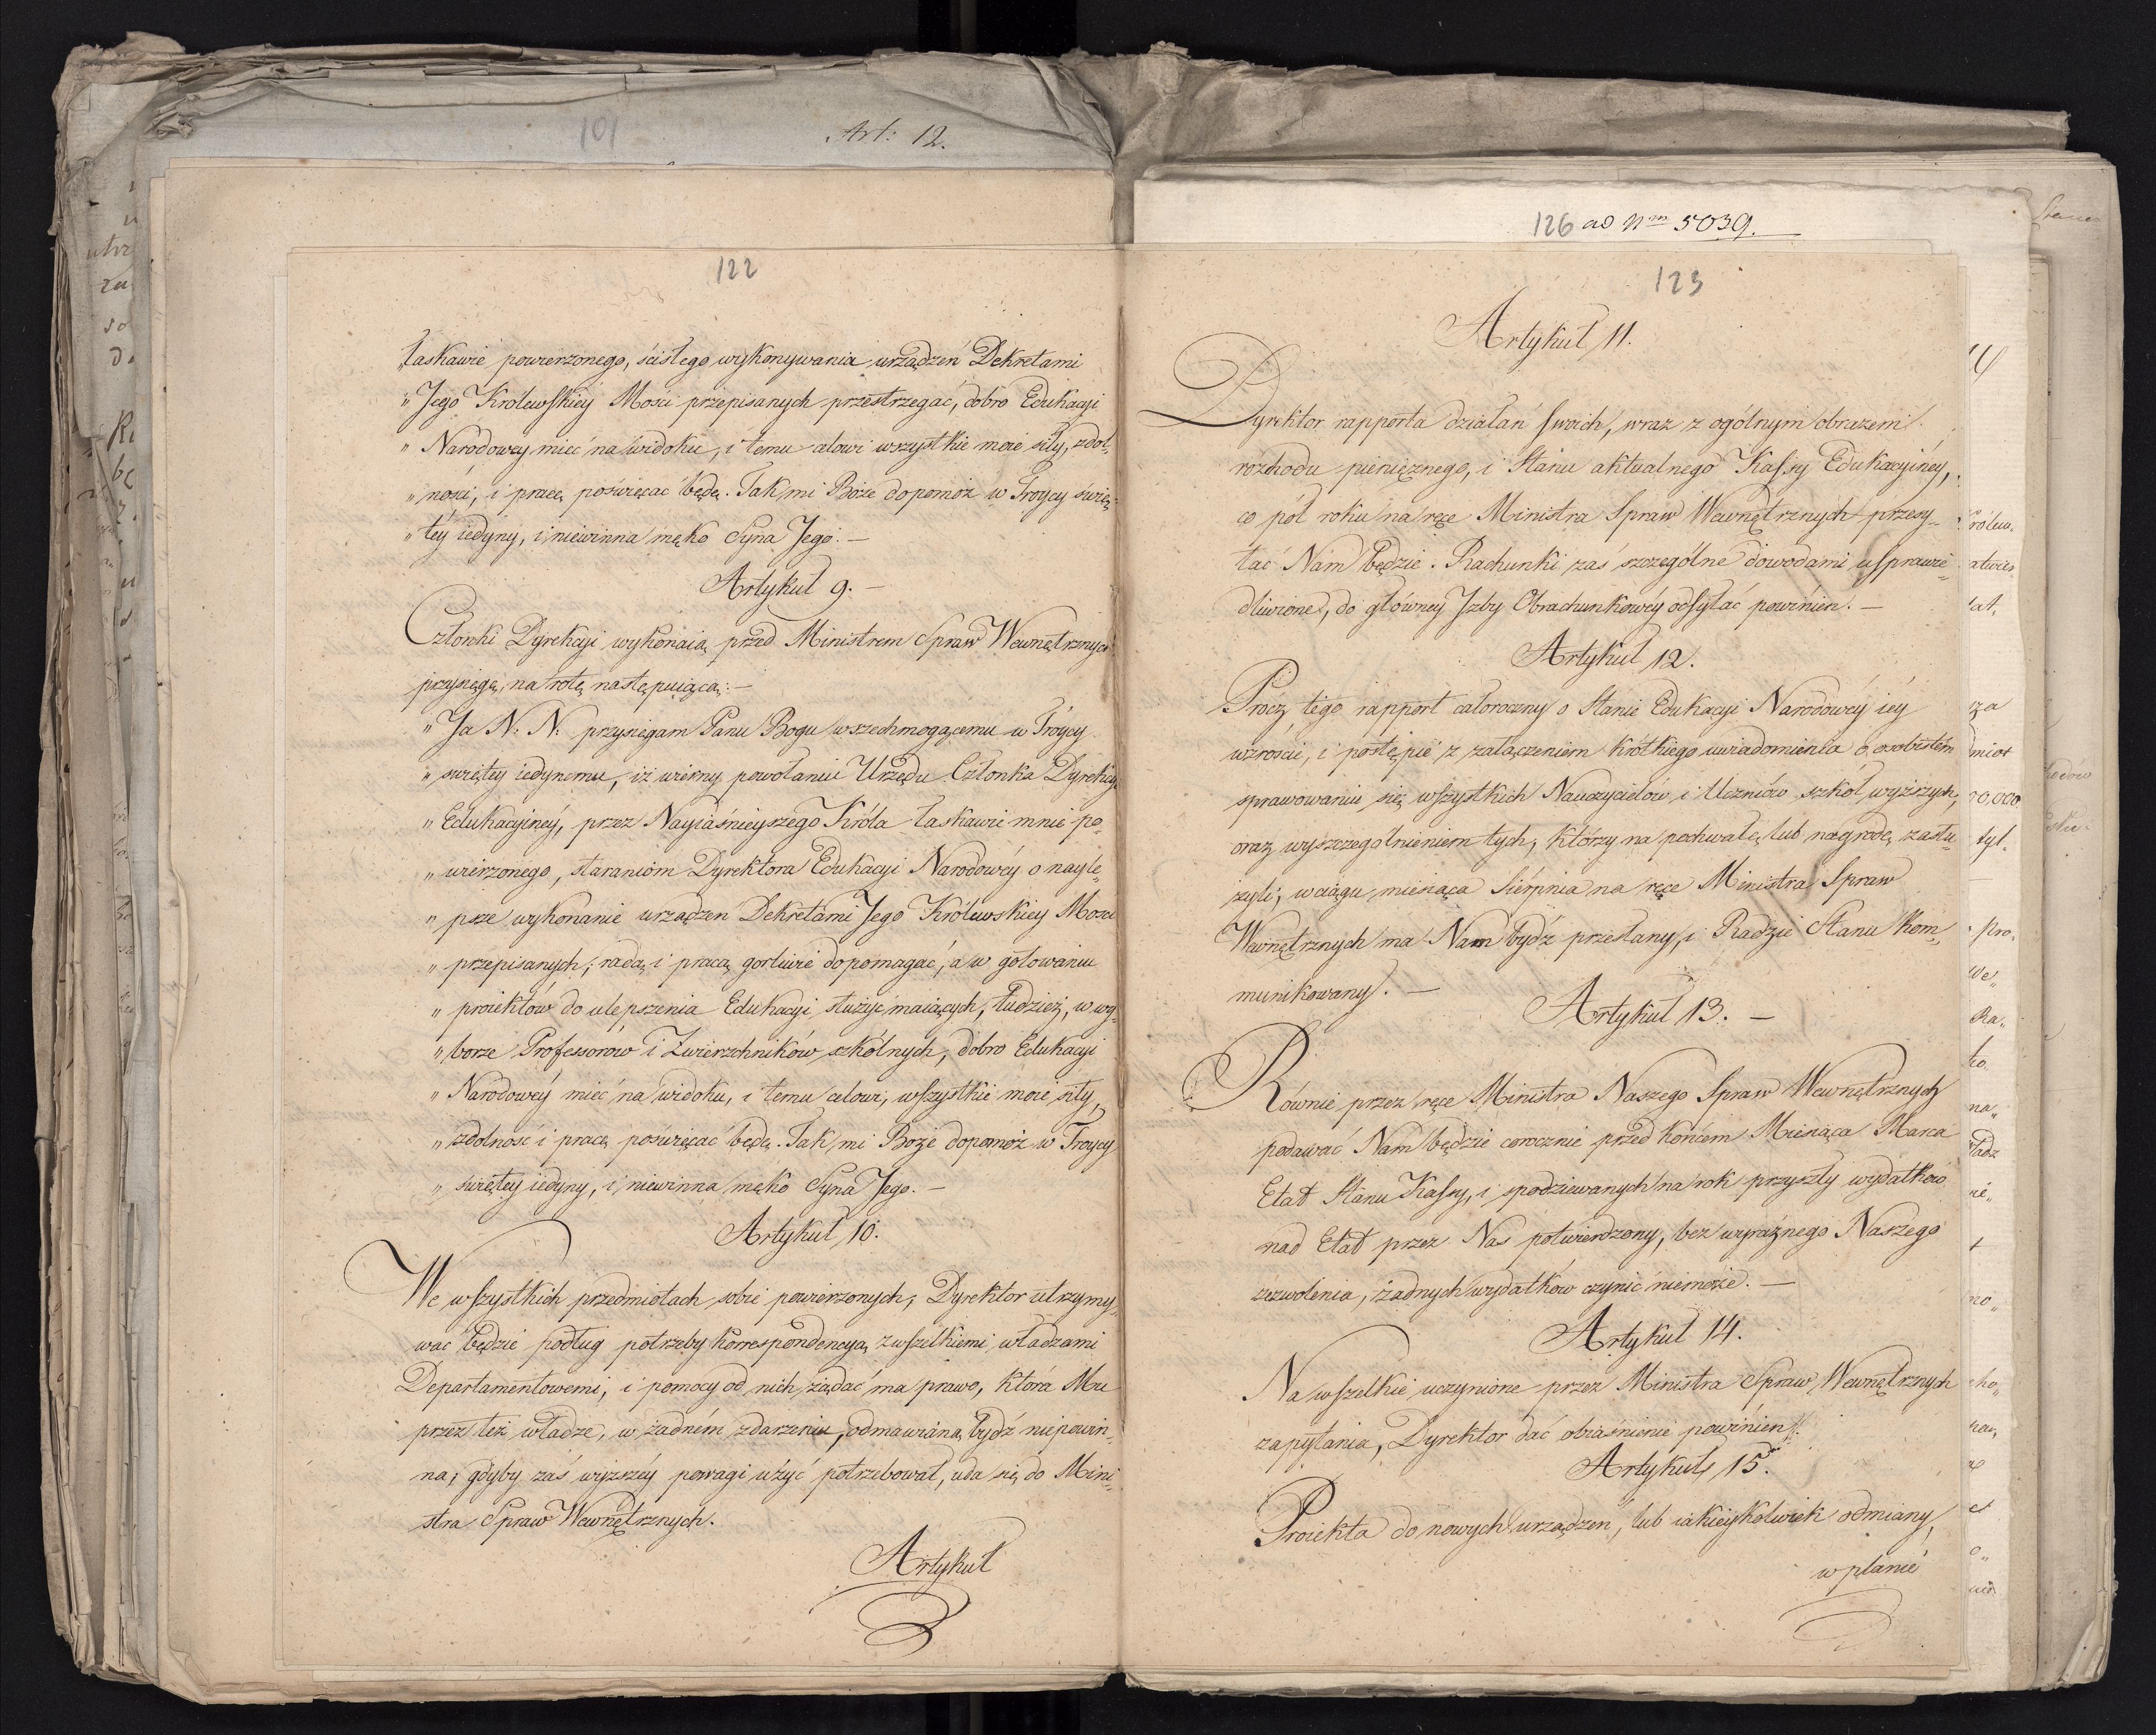 101
Art: 12.
122
„łaskawie powierzonego, ścisłego wykonywania urządzeń Dekretami
„Jego Krolewskiey Mosci przepisanych przestrzegać, dobro Edukacyi
„Narodowey mieć na widoku, i temu alowi wszystkie moie siły, zdol„
„ności, i pracę poświęcać będę. Tak mi Boże dopomóż w Troycy świę„
„téy iedyny, i niewinna męko Syna Jego. —
Artykuł 9. —
Członki Dyrekcyi wykonaią przed Ministrem Spraw Wewnętrznych
przysięgę, na rotę następuiącą: —
„Ja N: N: przysięgam Panu Bogu wszechmogącemu w Tróycy
„swiętey iedynemu, iż wierny powołaniu Urzędu Członka Dyrekcyi
„Edukacyinéy, przez Nayiaśnieyszego Króla łaskawie mnie po„
„wierzonego, staraniom Dyrektora Edukacyi Narodowéy o nayle„
„psze wykonanie urządzeń Dekretami Jego Królewskiey Mosci
„przepisanych, radą i pracą gorliwie dopomagać, a w gotowaniu
„proiektów do ulepszenia Edukacyi służyc maiących, tudzież, w wy„
„borze Professorów i Zwierzchników szkólnych, dobro Edukacyi
„Narodowéy mieć na widoku, i temu celowi, wszystkie moie siły,
„zdolność i pracę poświęcać będę. Tak mi Boże dopomóż w Troycy
„swiętey iedyny, i niewinna męko Syna Jego. —
Artykuł 10.
We wszystkich przedmiotach sobie powierzonych, Dyrektor utrzymy„
wać będzie podług potrzeby korrespondencyą z wszelkiemi władzami
Departamentowemi, i pomocy od nich żądać ma prawo, która Mu
przez też władze, w żadném zdarzeniu, odmawiána bydź niepowin„
na, gdyby zaś wyższéy powagi użyć potrzebował, uda się do Mini„
stra Spraw Wewnętrznych.
Artykuł
126 ad Nrm 5039.
123
Artykuł 11.
Dyrektor rapporta działań swoich, wraz z ogólnym obrazem
rozchodu pieniężnego, i Stanu aktualnego Kassy Edukacyinéy,
co pół roku na ręce Ministra Spraw Wewnętrznych przesy„
łać Nám będzie. Rachunki zaś szczególne dowodami usprawie„
dliwione, do głównéy Izby Obrachunkowéy odsyłać powinien. —
Artykuł 12.
Prócz tego rapport całoroczny o Stanie Edukacyi Narodowéy iéy
wzroście, i postępie z załączeniem krótkiego uwiadomienia o osobistém
sprawowaniu się wszystkich Nauczycielów i Uczniów szkół wyższych,
oraz wyszczególnieniem tych, którzy na pochwałę lub nagrodę zasłu„
żyli, w ciągu miesiąca Sierpnia na ręce Ministra Spraw
Wewnętrznych ma Nam bydź przesłany, i Radzie Stanu kom„
munikowany. —
Artykuł 13. —
Równie przez ręce Ministra Naszego Spraw Wewnętrznych
podawać Nam będzie corocznie przed końcem Miesiąca Marca
Etat Stanu Kassy, i spodziewanych na rok przyszły wydatków
nad Etat przez Nas potwierdzony, bez wyraźnego Naszego
zezwolenia, żadnych wydatków czynić niemoże. —
Artykuł 14.
Na wszelkie uczynione przez Ministra Spraw Wewnętrznych
zapytania, Dyrektor dać obiaśnienie powinien.
Artykuł 15.
Proiekta do nowych urządzeń, lub iakieykolwiek odmiany,
w planie